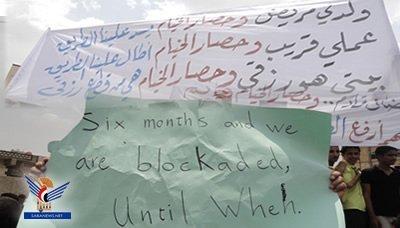 ولدي مريض وحصار الخيام يسد علينا الطريق
عملي قريب وحصار الخيام أطال علينا الطريق
بيتي هو رزقي وحصار الخيام هي من قطع رزقي
وحصار الخيام
ارفع
Six months and we
are blockaded,
Until Wheh.
SABANEWS.NET